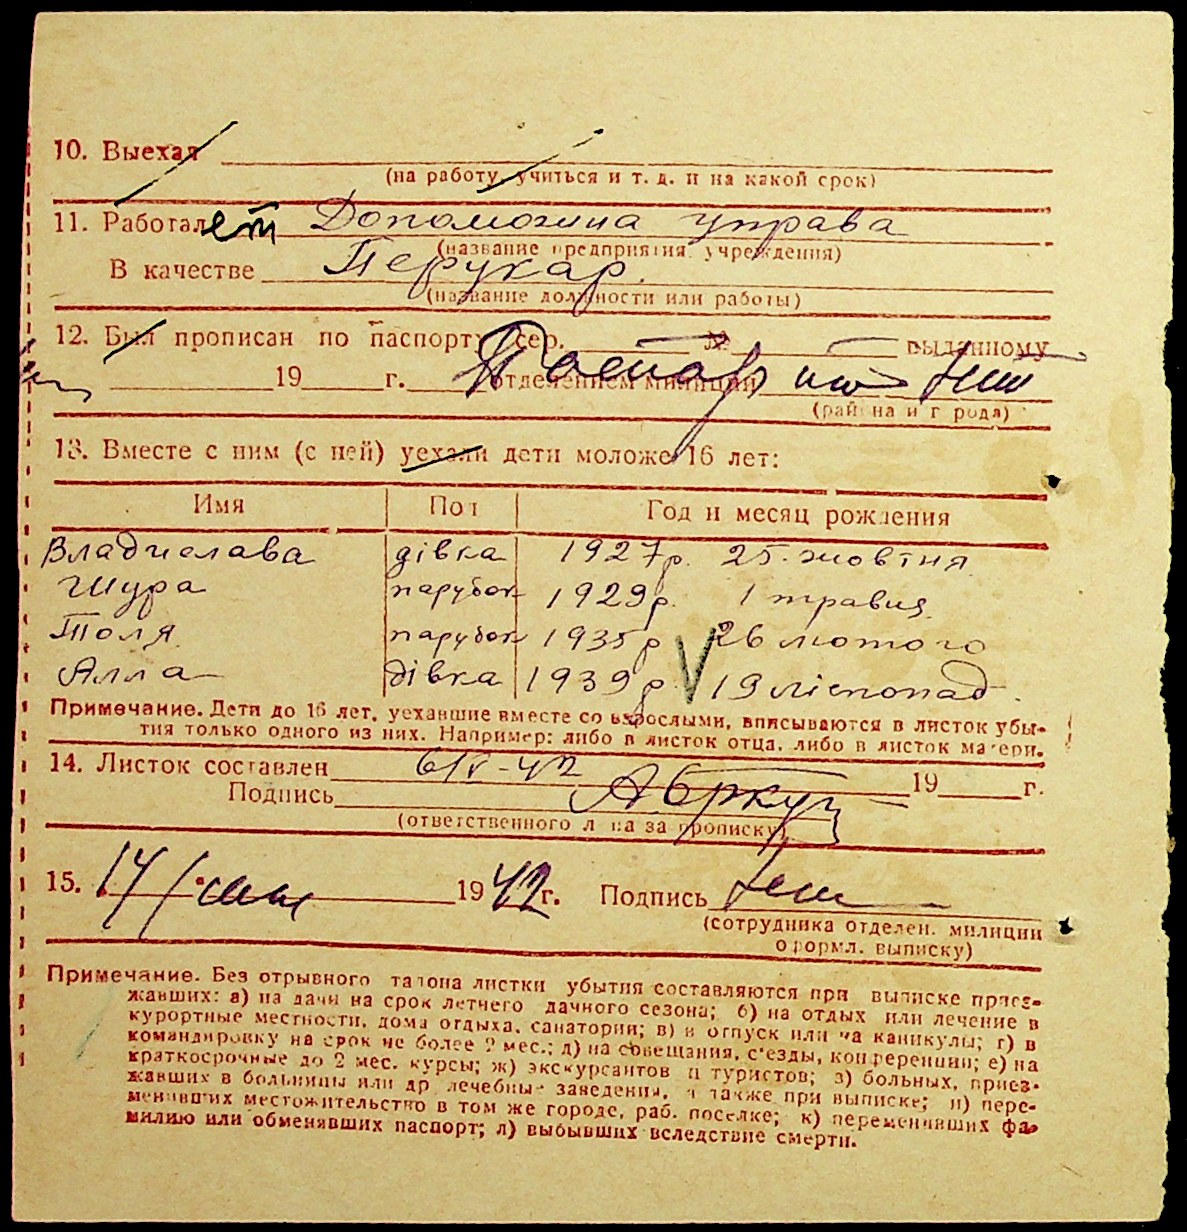 10. Выехал
(на работу, учиться и т. д. и на какой срок)
11. Работает Допоможна управа
(название предприятия, учреждения)
В качестве Перукар.
(название должности или работы)
12. Был прописан по паспорту сер. № выданному
19 г. отделением милиции
(района и города)
13. Вместе с ним (с ней) уехали дети моложе 16 лет:
Имя Пол Год и месяц рождения
Владислава дівка 1927р. 25 жовтня
Шура парубок 1929р. 1 травня
Толя парубок 1935р V 26 лютого
Алла дівка 1939р 19 лістопад.
Примечание. Дети до 16 лет, уехавшие вместе со взрослыми, вписываются в листок убы-
тия только одного из них. Например: либо в листок отца, либо в листок матери.
14. Листок составлен 6/V-42 19 г.
Подпись
(ответственного лица за прописку)
15. 14/ 1942г. Подпись
(сотрудника отделен. милиции
оформл. выписку)
Примечание. Без отрывного талона листки убытия составляются при выписке приез-
жавших: а) на дачи на срок летнего дачного сезона; б) на отдых или лечение в
курортные местности, дома отдыха, санатории; в) в отпуск или на каникулы; г) в
командировку на срок не более 2 мес.; д) на совещания, с'езды, конференции; е) на
краткосрочные до 2 мес. курсы; ж) экскурсантов и туристов; з) больных, приез-
жавших в больницы или др лечебные заведения, а также при выписке; и) пере-
менивших местожительство в том же городе, раб. поселке; к) переменивших фа-
милию или обменявших паспорт; л) выбывших вследствие смерти.